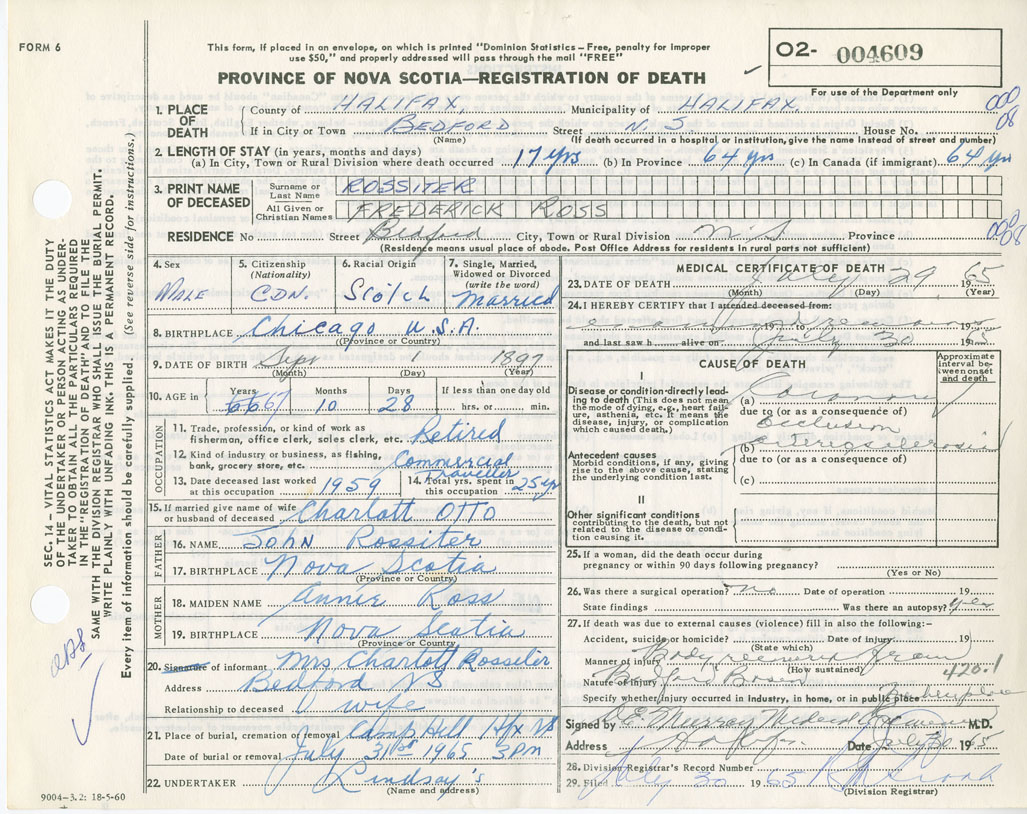 FORM 6
This form, if placed in an envelope, on which is printed "Dominion Statistics—Free, penalty for improper
use $50," and properly addressed will pass through the mail "FREE"
PROVINCE OF NOVA SCOTIA—REGISTRATION OF DEATH
O2- 004609
For use of the Department only
000
08
1. PLACE OF DEATH
County of HALIFAX Municipality of HALIFAX
If in City or Town BEDFORD Street N.S. House No.
(Name) (If death occurred in a hospital or institution, give the name instead of street and number)
2. LENGTH OF STAY (in years, months and days)
(a) In City, Town or Rural Division where death occurred 17 yrs (b) In Province 64 yrs (c) In Canada (if immigrant) 64 yrs
3. PRINT NAME OF DECEASED
Surname or Last Name ROSSITER
All Given or Christian Names FREDERICK ROSS
RESIDENCE No Street Bedford City, Town or Rural Division N.S Province
000
08
(Residence means usual place of abode. Post Office Address for residents in rural parts not sufficient)
4. Sex MALE
5. Citizenship (Nationality) CDN.
6. Racial Origin Scotch
7. Single, Married, Widowed or Divorced (write the word) Married
8. BIRTHPLACE Chicago U.S.A.
(Province or Country)
9. DATE OF BIRTH Sept 1 1897
(Month) (Day) (Year)
10. AGE in Years 66 67 Months 10 Days 28 If less than one day old hrs. or min.
OCCUPATION
11. Trade, profession, or kind of work as fisherman, office clerk, sales clerk, etc. Retired
12. Kind of industry or business, as fishing, bank, grocery store, etc. Commercial Traveller
13. Date deceased last worked at this occupation 1959
14. Total yrs. spent in this occupation 25 yr
15. If married give name of wife or husband of deceased Charlott OTTO
FATHER
16. NAME John Rossiter
17. BIRTHPLACE Nova Scotia
(Province or Country)
MOTHER
18. MAIDEN NAME Annie Ross
19. BIRTHPLACE Nova Scotia
(Province or Country)
20. Signature of informant Mrs Charlott Rossiter
Address Bedford NS
Relationship to deceased wife
21. Place of burial, cremation or removal Camp Hill Hfx NS
Date of burial or removal July 31st 1965 3pm
22. UNDERTAKER Lindsay's
(Name and address)
9004-3.2: 18-5-60
MEDICAL CERTIFICATE OF DEATH
23. DATE OF DEATH July 29 1965
(Month) (Day) (Year)
24. I HEREBY CERTIFY that I attended deceased from:
19 to 19
and last saw h alive on July 30 19
CAUSE OF DEATH
Approximate interval between onset and death
I
Disease or condition directly leading to death (This does not mean the mode of dying, e.g., heart failure, asthenia, etc. It means the disease, injury, or complication which caused death.)
(a) Coronary
due to (or as a consequence of)
Occlusion
Antecedent causes
Morbid conditions, if any, giving rise to the above cause, stating the underlying condition last.
(b)
due to (or as a consequence of)
(c)
II
Other significant conditions
contributing to the death, but not related to the disease or condition causing it.
25. If a woman, did the death occur during pregnancy or within 90 days following pregnancy?
(Yes or No)
26. Was there a surgical operation? no Date of operation 19
State findings Was there an autopsy? yes
27. If death was due to external causes (violence) fill in also the following:—
Accident, suicide or homicide? Date of injury 19
(State which)
Manner of injury Body recovered from
(How sustained)
Nature of injury Bedford Basin 420.1
Specify whether injury occurred in industry, in home, or in public place
Signed by E. Murray Medical Examiner M.D.
Address Halifax Date July 30 1965
28. Division Registrar's Record Number
29. Filed July 30 1965
(Division Registrar)
SEC. 14 — VITAL STATISTICS ACT MAKES IT THE DUTY
OF THE UNDERTAKER OR PERSON ACTING AS UNDER-
TAKER TO OBTAIN ALL THE PARTICULARS REQUIRED
IN THE "REGISTRATION OF DEATH" AND TO FILE THE
SAME WITH THE DIVISION REGISTRAR WHO SHALL ISSUE THE BURIAL PERMIT.
WRITE PLAINLY WITH UNFADING INK. THIS IS A PERMANENT RECORD.
Every item of information should be carefully supplied. (See reverse side for instructions.)